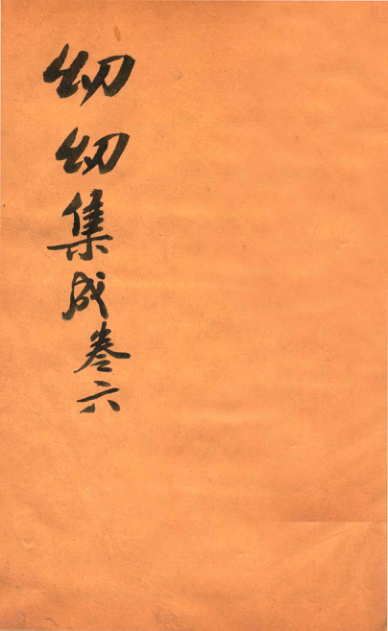 幼幼集成卷六